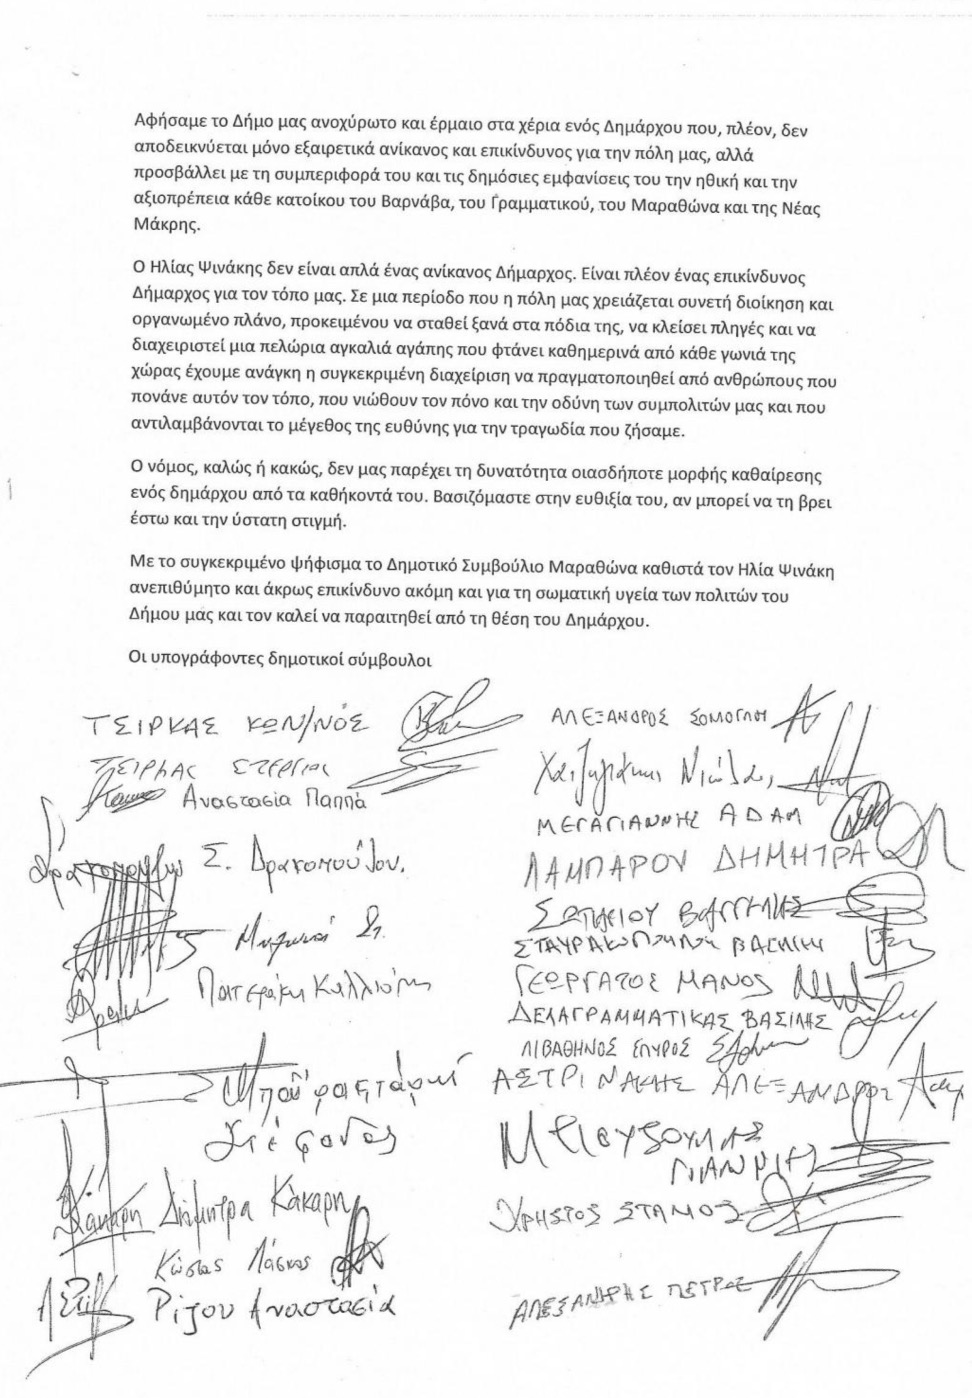 Αφήσαμε το Δήμο μας ανοχύρωτο και έρμαιο στα χέρια ενός Δημάρχου που, πλέον, δεν
αποδεικνύεται μόνο εξαιρετικά ανίκανος και επικίνδυνος για την πόλη μας, αλλά
προσβάλλει με τη συμπεριφορά του και τις δημόσιες εμφανίσεις του την ηθική και την
αξιοπρέπεια κάθε κατοίκου του Βαρνάβα, του Γραμματικού, του Μαραθώνα και της Νέας
Μάκρης.
Ο Ηλίας Ψινάκης δεν είναι απλά ένας ανίκανος Δήμαρχος. Είναι πλέον ένας επικίνδυνος
Δήμαρχος για τον τόπο μας. Σε μια περίοδο που η πόλη μας χρειάζεται συνετή διοίκηση και
οργανωμένο πλάνο, προκειμένου να σταθεί ξανά στα πόδια της, να κλείσει πληγές και να
διαχειριστεί μια πελώρια αγκαλιά αγάπης που φτάνει καθημερινά από κάθε γωνιά της
χώρας έχουμε ανάγκη η συγκεκριμένη διαχείριση να πραγματοποιηθεί από ανθρώπους που
πονάνε αυτόν τον τόπο, που νιώθουν τον πόνο και την οδύνη των συμπολιτών μας και που
αντιλαμβάνονται το μέγεθος της ευθύνης για την τραγωδία που ζήσαμε.
Ο νόμος, καλώς ή κακώς, δεν μας παρέχει τη δυνατότητα οιασδήποτε μορφής καθαίρεσης
ενός δημάρχου από τα καθήκοντά του. Βασιζόμαστε στην ευθιξία του, αν μπορεί να τη βρει
έστω και την ύστατη στιγμή.
Με το συγκεκριμένο ψήφισμα το Δημοτικό Συμβούλιο Μαραθώνα καθιστά τον Ηλία Ψινάκη
ανεπιθύμητο και άκρως επικίνδυνο ακόμη και για τη σωματική υγεία των πολιτών του
Δήμου μας και τον καλεί να παραιτηθεί από τη θέση του Δημάρχου.
Οι υπογράφοντες δημοτικοί σύμβουλοι
ΤΣΙΡΚΑΣ ΚΩΝ/ΝΟΣ
ΤΣΙΡΚΑΣ ΣΤΕΡΓΙΟΣ
Αναστασία Παππά
Σ. Δρακοπούλου.
Πατεράκη Καλλιόπη
Στέφανος
Δήμητρα Κάκαρη
Κώστας Λάσκος
Ρίζου Αναστασία
ΑΛΕΞΑΝΔΡΟΣ
ΜΕΓΑΓΙΑΝΝΗΣ ΑΔΑΜ
ΛΑΜΠΑΡΟΥ ΔΗΜΗΤΡΑ
ΣΩΤΗΡΙΟΥ ΒΑΓΓΕΛΗΣ
ΓΕΩΡΓΑΤΟΣ ΜΑΝΟΣ
ΔΕΛΑΓΡΑΜΜΑΤΙΚΑΣ ΒΑΣΙΛΗΣ
ΛΙΒΑΘΗΝΟΣ ΣΠΥΡΟΣ
ΑΣΤΡΙΝΑΚΗΣ ΑΛΕΞΑΝΔΡΟΣ
ΓΙΑΝΝΗΣ
ΧΡΗΣΤΟΣ ΣΤΑΜΟΣ
ΠΕΤΡΟΣ